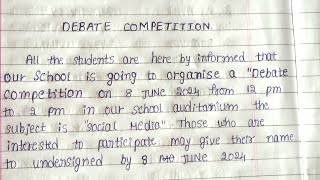 DEBATE COMPETITION
All the students are here by informed that
our school is going to organise a "Debate
competition on 8 June 2024 from 12 pm
to 2 pm in our school auditorium the
subject is "Social Media". Those who are
interested to participate may give their name
to undensigned by 8 June 2024.